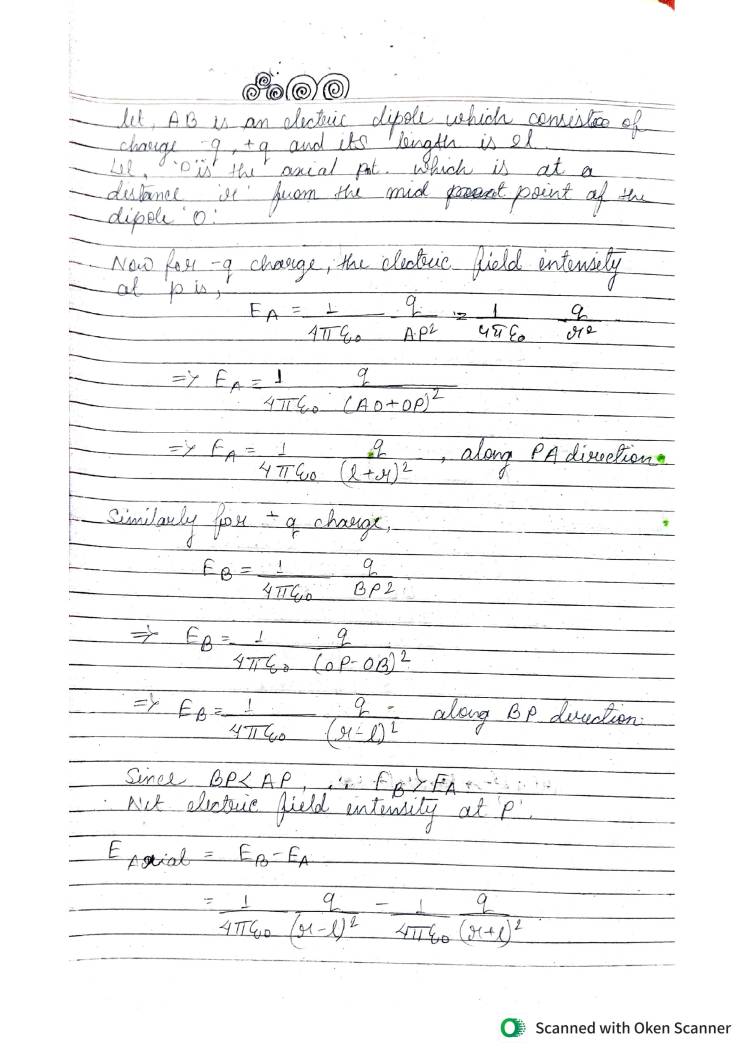 Let, AB is an electric dipole which consistes of
charge -q, +q and its length is 2l.
Let, 'P' is the axial pnt. which is at a
distance 'r' from the mid point of the
dipole 'O'.
Now for -q charge, the electric field intensity
at p is,
E_A = 1/4πε₀ q/AP² = 1/4πε₀ q/r²
=> E_A = 1/4πε₀ q/(AO+OP)²
=> E_A = 1/4πε₀ q/(l+r)², along PA direction.
Similarly for +q charge,
E_B = 1/4πε₀ q/BP2
=> E_B = 1/4πε₀ q/(OP-OB)²
=> E_B = 1/4πε₀ q/(r-l)² along BP direction.
Since BP< AP, ∴ E_B > E_A
Net electric field intensity at 'P'.
E Axial = E_B - E_A
= 1/4πε₀ q/(r-l)² - 1/4πε₀ q/(r+l)²
Scanned with Oken Scanner